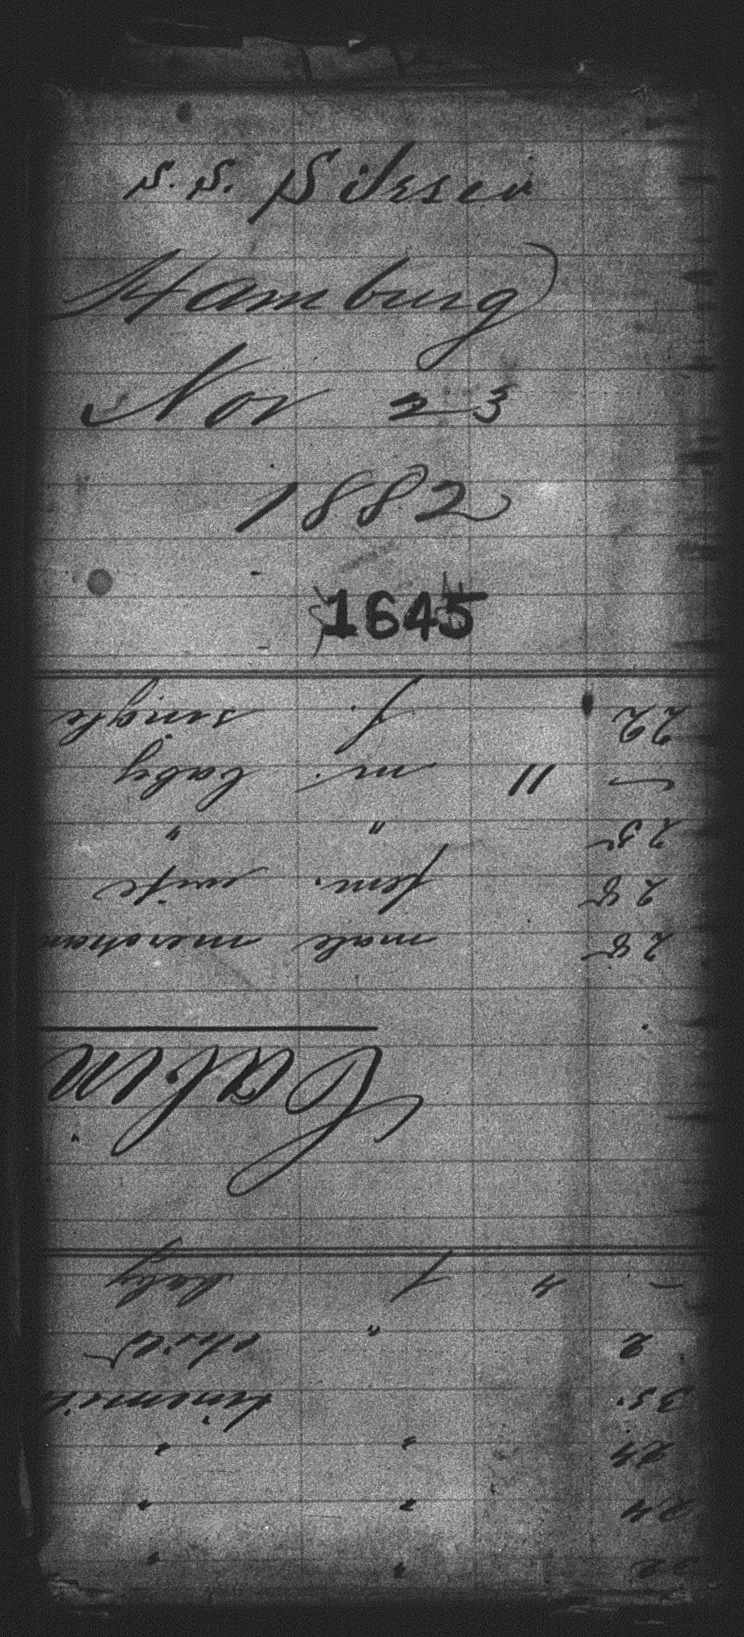 S.S. Silesia
Hamburg
Nov 23
1882
1645
22 " "
24 " "
24 " "
35 tinsmith
2 " child
— 4 f baby
Cabin
28 male merchan
28 fem. wife
25 " "
— 11 m. baby
22 f. single